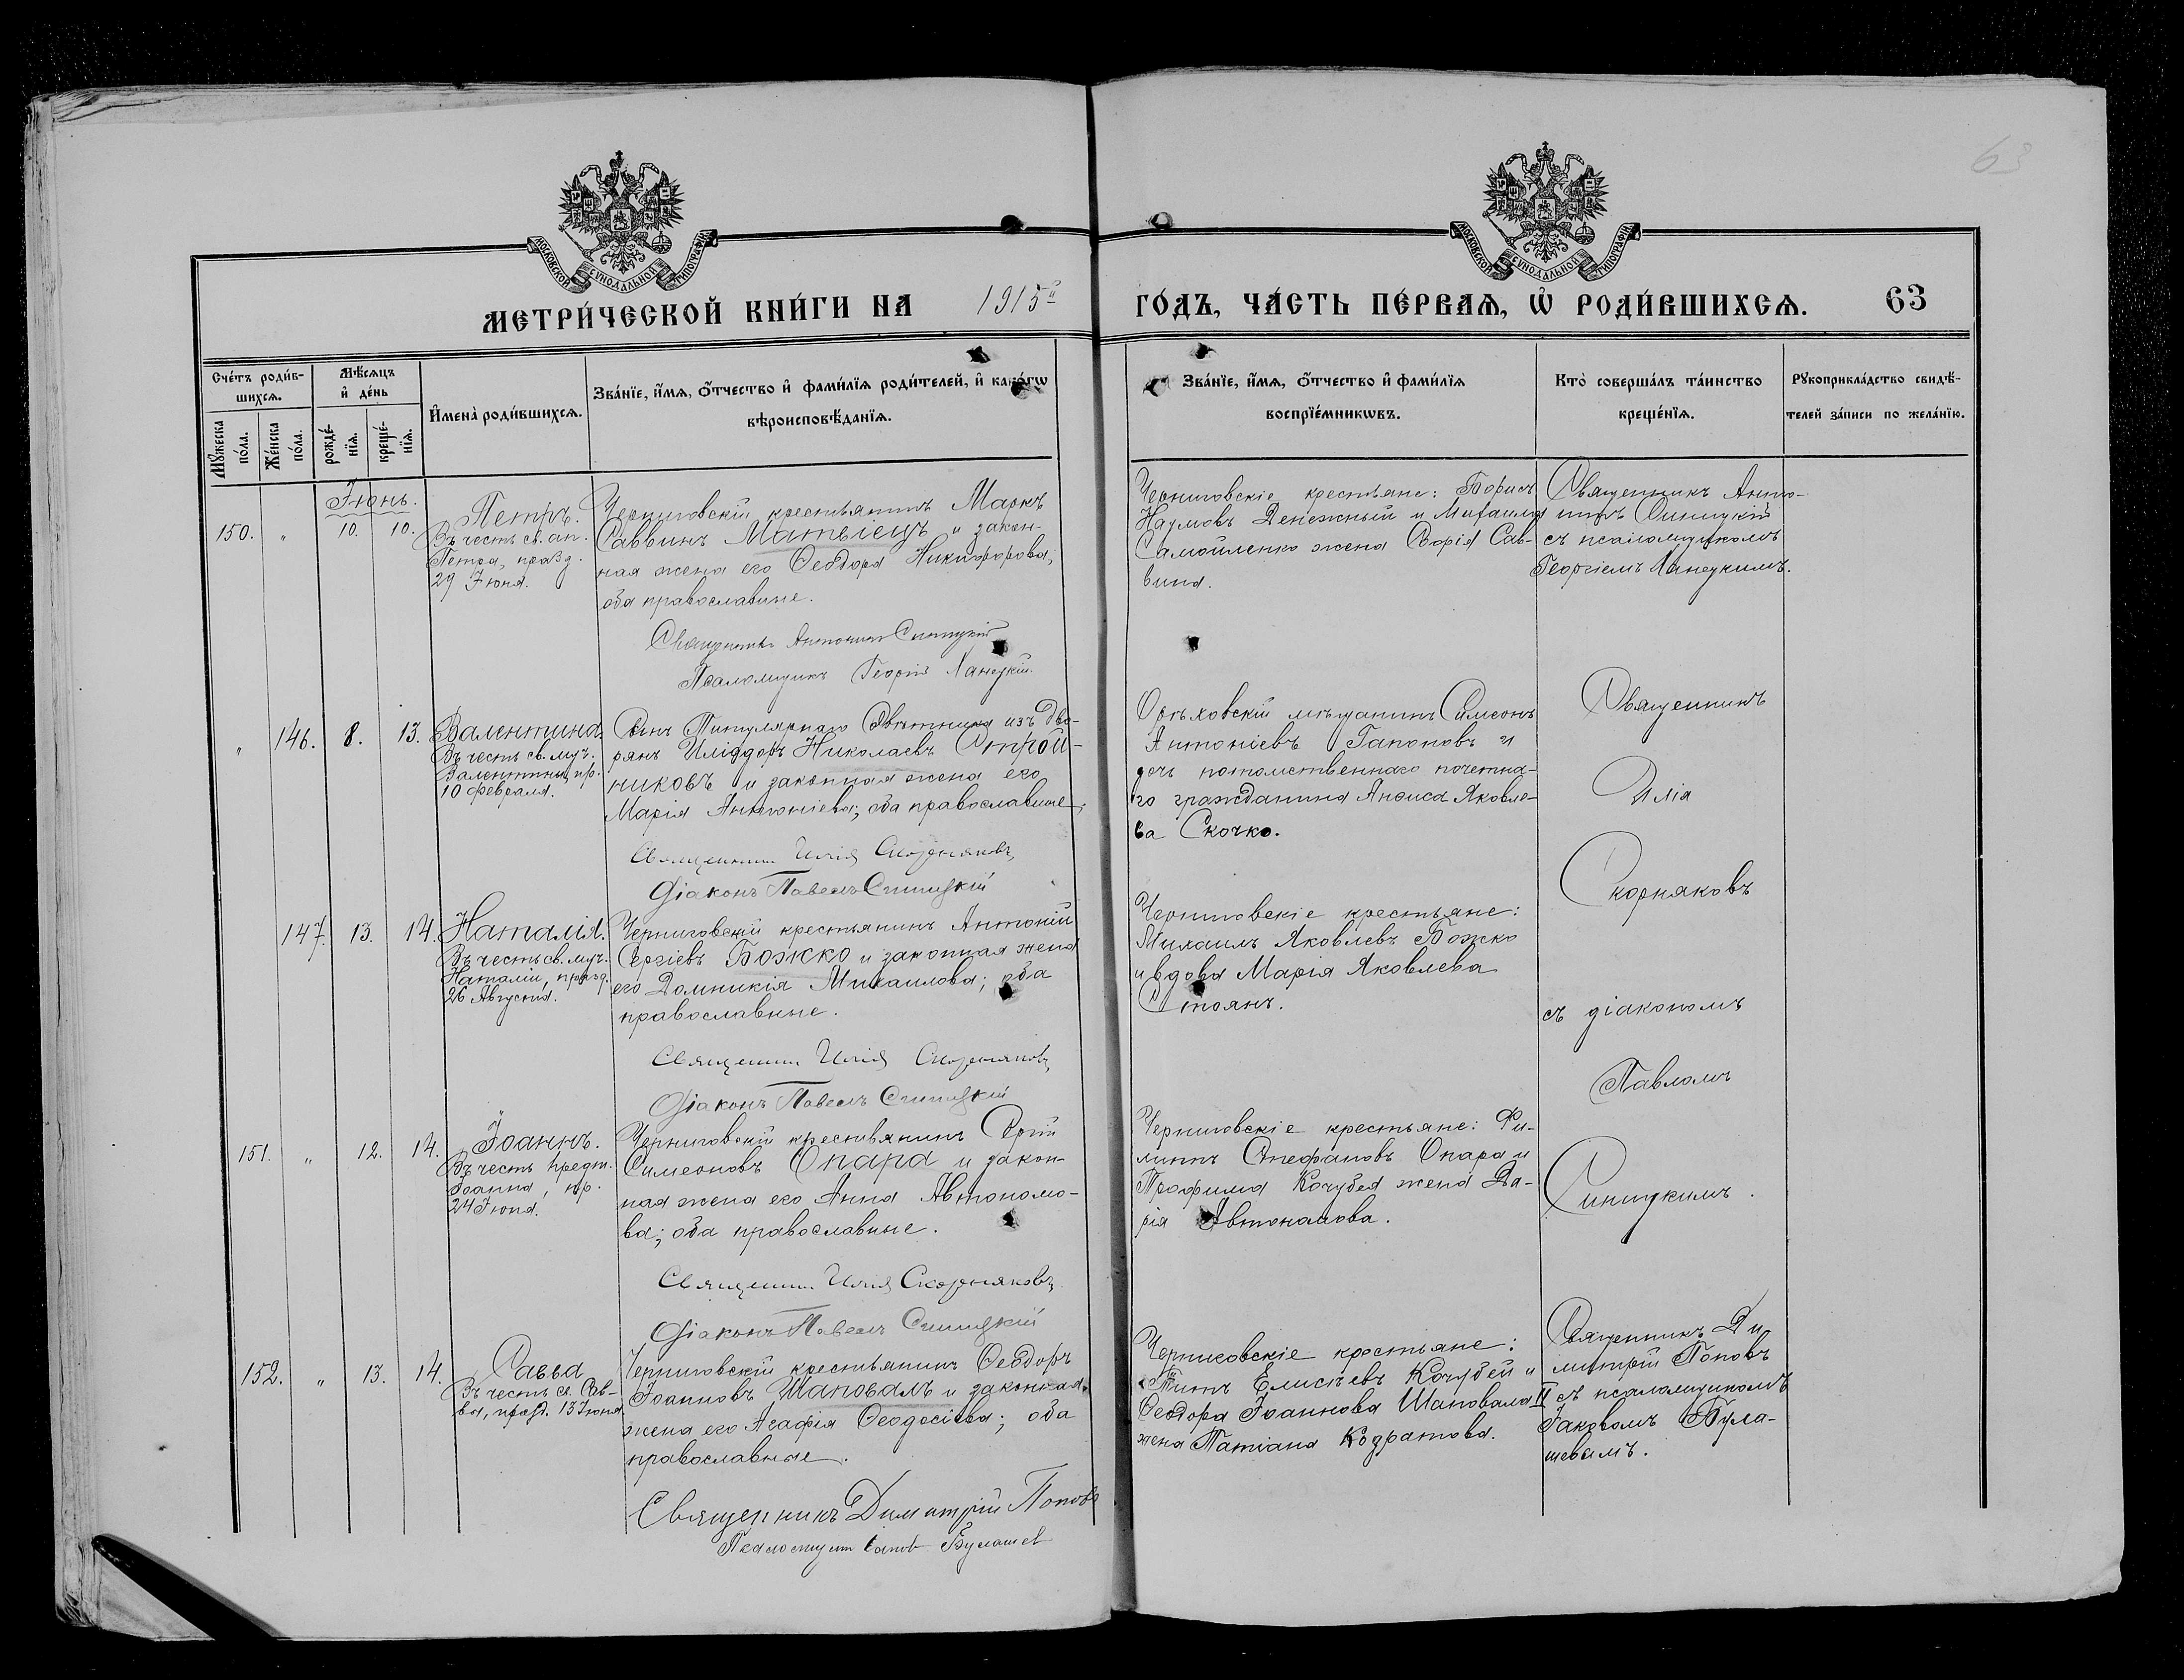 63
МОСКОВСКОЙ СѴНОДАЛЬНОЙ ТИПОГРАФІИ
МОСКОВСКОЙ СѴНОДАЛЬНОЙ ТИПОГРАФІИ
МЕТРИ́ЧЕСКОЙ КНИ́ГИ НА 1915й ГО́ДЪ, ЧА́СТЬ ПЕ́РВАѦ, Ѡ҆ РОДИ́ВШИХСѦ. 63
Сче́тъ роди́в-
шихсѧ.
Мꙋ́жеска
по́ла.
Же́нска
по́ла.
Мѣ́сѧцъ
и҆ де́нь
рожде́-
нїѧ.
креще́-
нїѧ.
И҆мена̀ роди́вшихсѧ.
Зва́нїе, и҆́мѧ, ѻ҆́тчество и҆ фами́лїѧ роди́телей, и҆ како́гѡ
вѣроисповѣ́данїѧ.
Зва́нїе, и҆́мѧ, ѻ҆́тчество и҆ фами́лїѧ
воспрїе́мникѡвъ.
Кто̀ соверша́лъ та́инство
креще́нїѧ.
Рꙋкоприкла́дство свидѣ́-
телей за́писи по жела́нїю.
Іюнь.
150. " 10. 10.
Петръ.
Въ честь св. ап.
Петра, празд.
29 Іюня.
Черниговскій крестьянинъ Маркъ
Саввинъ Матвіецъ и закон-
ная жена его Ѳеодора Никифорова;
оба православные.
Священникъ Антонинъ Синицкій
Псаломщикъ Георгій Ханецкій.
Черниговскіе крестьяне: Борисъ
Наумовъ Денежный и Михаила
Самойленко жена Софія Сав-
вина.
Священникъ Анто-
нинъ Синицкій
съ псаломщикомъ
Георгіемъ Ханецкимъ.
" 146. 8. 13.
Валентина
Въ честь св. муч.
Валентины, пр.
10 февраля.
Сынъ Титулярнаго Совѣтника изъ дво-
рянъ Иліодоръ Николаевъ Строй-
никовъ и законная жена его
Марія Антоніева; оба православные.
Священникъ Илія Скорняковъ,
Діаконъ Павелъ Синицкій
Орѣховскій мѣщанинъ Симеонъ
Антоніевъ Гапоновъ и
дочь потомственнаго почетна-
го гражданина Анѳиса Яковле-
ва Скочко.
Священникъ
Илія
Скорняковъ
съ діакономъ
Павломъ
Синицкимъ.
147. 13. 14.
Наталія.
Въ честь св. муч.
Наталіи, празд.
26 Августа.
Черниговскій крестьянинъ Антоній
Сергіевъ Божко и законная жена
его Домникія Михаилова; оба
православные.
Священникъ Илія Скорняковъ,
Діаконъ Павелъ Синицкій
Черниговскіе крестьяне:
Михаилъ Яковлевъ Божко
и вдова Марія Яковлева
Стоянъ.
151. " 12. 14.
Іоаннъ.
Въ честь Предт.
Іоанна, пр.
24 Іюня.
Черниговскій крестьянинъ Сергій
Симеоновъ Опара и закон-
ная жена его Анна Автономо-
ва; оба православные.
Священникъ Илія Скорняковъ,
Діаконъ Павелъ Синицкій
Черниговскіе крестьяне: Фи-
липпъ Стефановъ Опара и
Трофима Кочубея жена Да-
рія Автономова.
152. " 13. 14.
Савва
Въ честь св. Сав-
вы, празд. 13 Іюня.
Черниговскій крестьянинъ Ѳеодоръ
Іоанновъ Шаповалъ и законная
жена его Агафія Ѳеодосіева; оба
православные.
Священникъ Димитрій Поповъ
Псаломщикъ Булашев
Черниговскіе крестьяне:
Титъ Елисѣевъ Кочубей и
Ѳеодора Іоаннова Шаповала II
жена Татіана Кодратова.
Священникъ Ди-
митрій Поповъ
съ псаломщикомъ
Іаковомъ Була-
шевымъ.